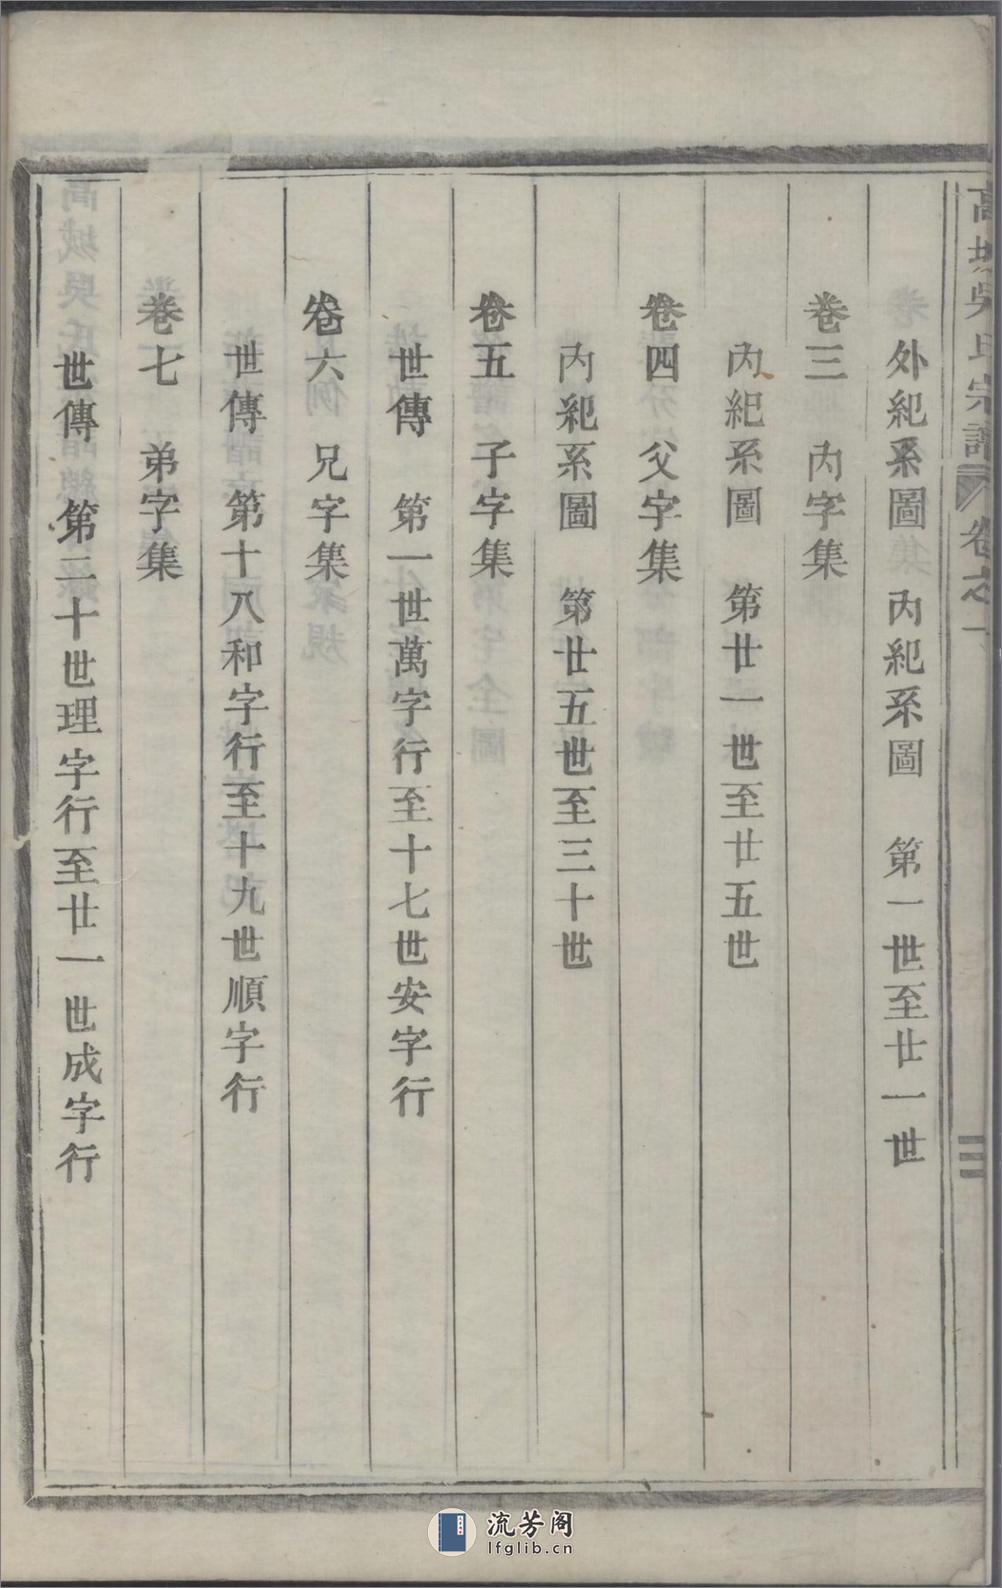 高城吳氏宗譜 卷之一 三
外紀系圖 內紀系圖 第一世至廿一世
卷三 內字集
內紀系圖 第廿一世至廿五世
卷四 父字集
內紀系圖 第廿五世至三十世
卷五 子字集
世傳 第一世萬字行至十七世安字行
卷六 兄字集
世傳 第十八和字行至十九世順字行
卷七 弟字集
世傳 第二十世理字行至廿一世成字行
流芳阁
lfglib.cn